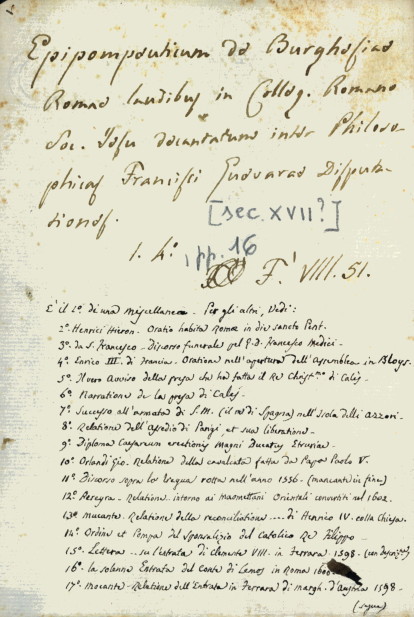 Epipompeuticum de Burghesiae
Romae laudibus in Colleg. Romano
Soc. Iesu decantatum inter Philoso-
phicas Francisci Guevarae Disputa-
tiones.
[sec. XVII?]
1. 4° pp. 16
F. VIII. 51.
È il 1° di una miscellanea. Per gli altri, vedi:
2° Henrici Hieron. Oratio habita Romae in die sancto Pent.
3° da S. Francesco - Discorso funerale pel P. D. Francesco Medici -
4° Enrico III. di Francia. Oratione nell'apertura dell'Assemblea in Bloys.
5° Nuovo Avviso della presa che ha fatta il Re Christ.mo di Cales -
6° Narratione de la presa di Cales -
7° Successo all'armata di S. M. (il re di Spagna) nell'Isola delli Azzori -
8° Relatione dell'assedio di Parigi, et sua liberatione -
9° Diploma Caesareum erectionis Magni Ducatus Etruriae -
10° Orlandi Gio. Relatione della cavalcata fatta da Papa Paolo V.
11° Discorso sopra la tregua rotta nell'anno 1556. (mancante in fine)
12° Pereyra - Relatione intorno ai Maomettani Orientali convertiti nel 1602.
13° Mucante. Relatione della reconciliatione .... di Henrico IV. colla Chiesa.
14° Ordine et Pompa del Sponsalizio del Catolico Re Filippo -
15° Lettera .. su l'entrata di Clemente VIII. in Ferrara 1598 -
16° la solenne Entrata del Conte di Lemos in Roma 1600
17° Mocante - Relatione dell'Entrata in Ferrara di Margh. d'Austria 1598 -
(segue)